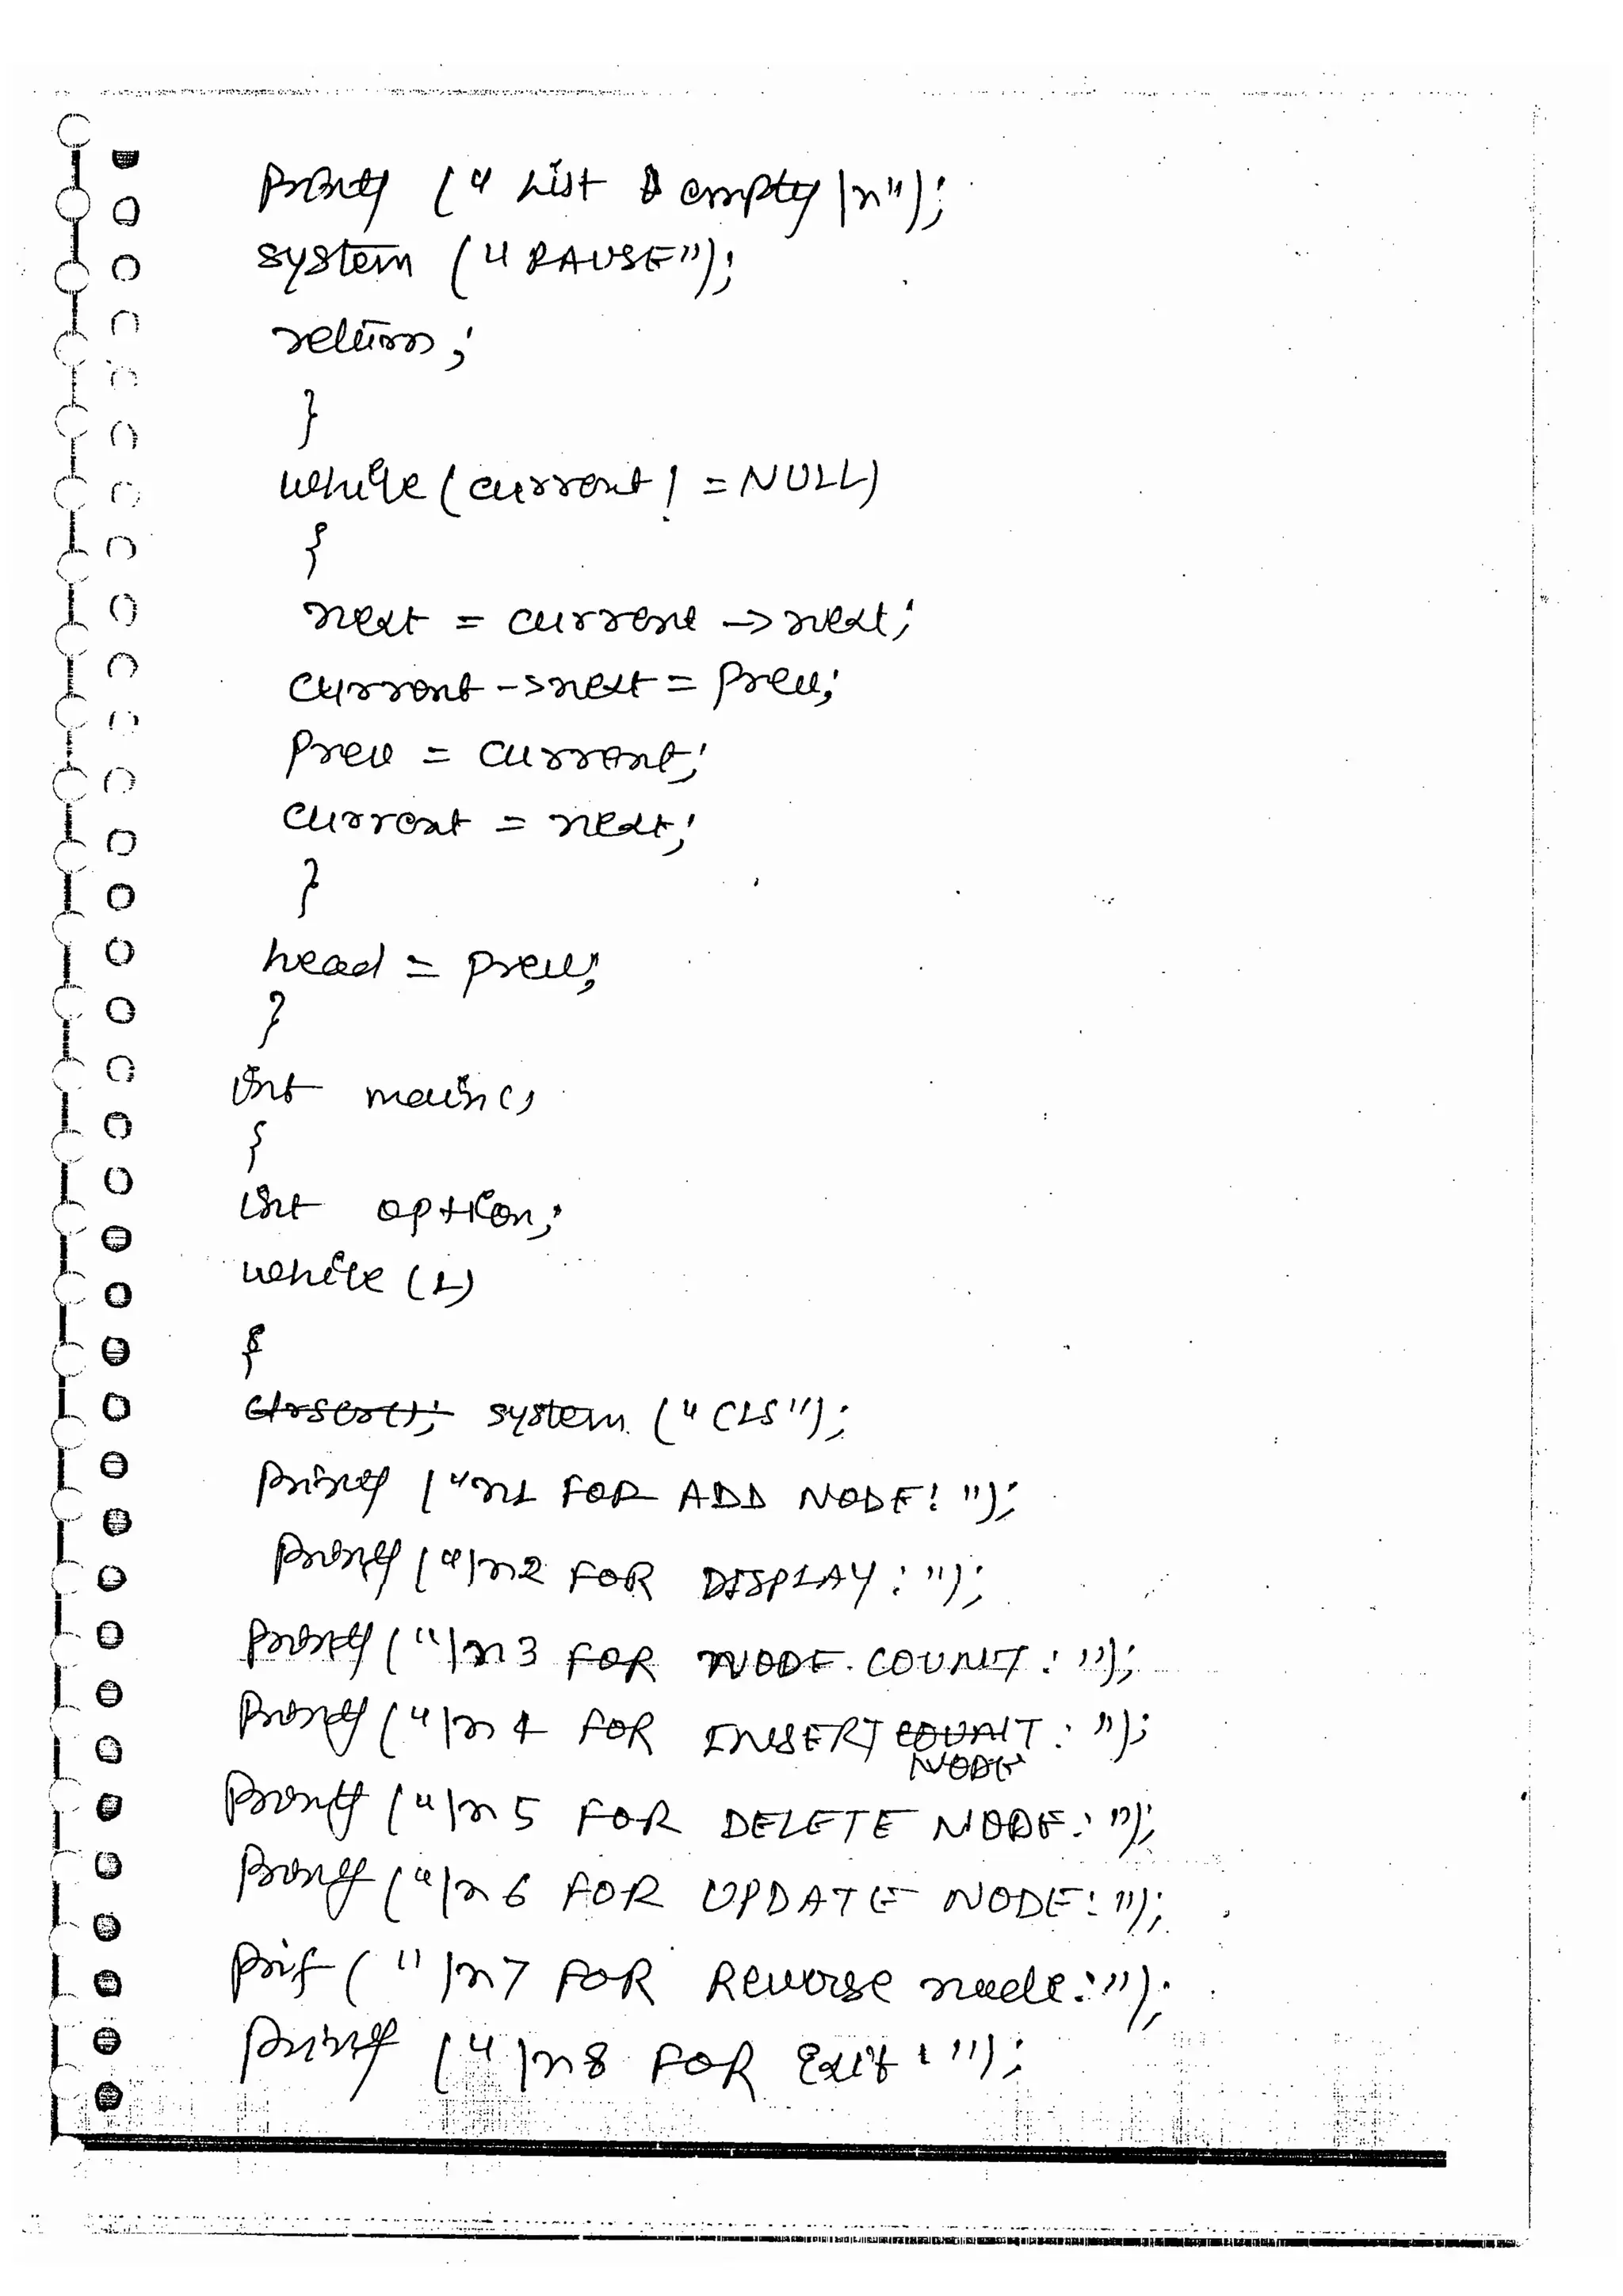 printf ("List empty \n");
system ("PAUSE");
return;
}
while (current! = NULL)
{
next = current -> next;
current -> next = prev;
prev = current;
current = next;
}
head = prev;
}
int main()
{
int option;
while (1)
{
clrscr(); system ("CLS");
printf ("n1 FOR ADD NODE: ");
printf ("\n2 FOR DISPLAY : ");
printf ("\n3 FOR NODE COUNT : ");
printf ("\n 4 FOR INSERT COUNT : ");
NODE
printf ("\n 5 FOR DELETE NODE: ");
printf ("\n 6 FOR UPDATE NODE: ");
prif ("\n7 FOR Reverse node: ");
printf ("\n8 FOR Exit : ");